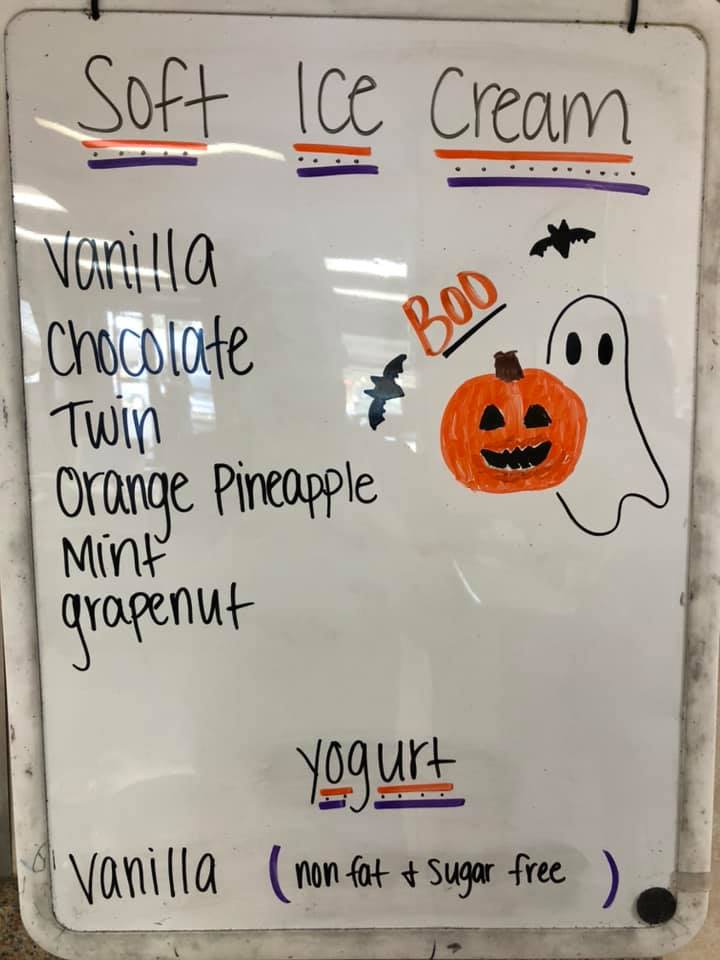 Soft Ice Cream
Vanilla
Chocolate
Twin
Orange Pineapple
Mint
grapenut
BOO
yogurt
Vanilla (non fat & Sugar free)